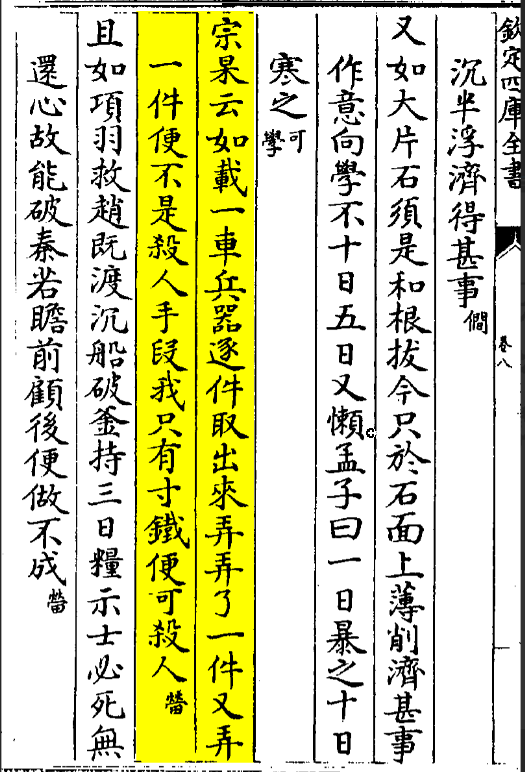 欽定四庫全書
卷八
沉半浮濟得甚事僩
又如大片石須是和根拔今只於石面上薄削濟甚事
作意向學不十日五日又懶孟子曰一日暴之十日
寒之可學
宗杲云如載一車兵器逐件取出來弄弄了一件又弄
一件便不是殺人手段我只有寸鐵便可殺人㽦
且如項羽救趙既渡沉船破釜持三日糧示士必死無
還心故能破秦若瞻前顧後便做不成㽦